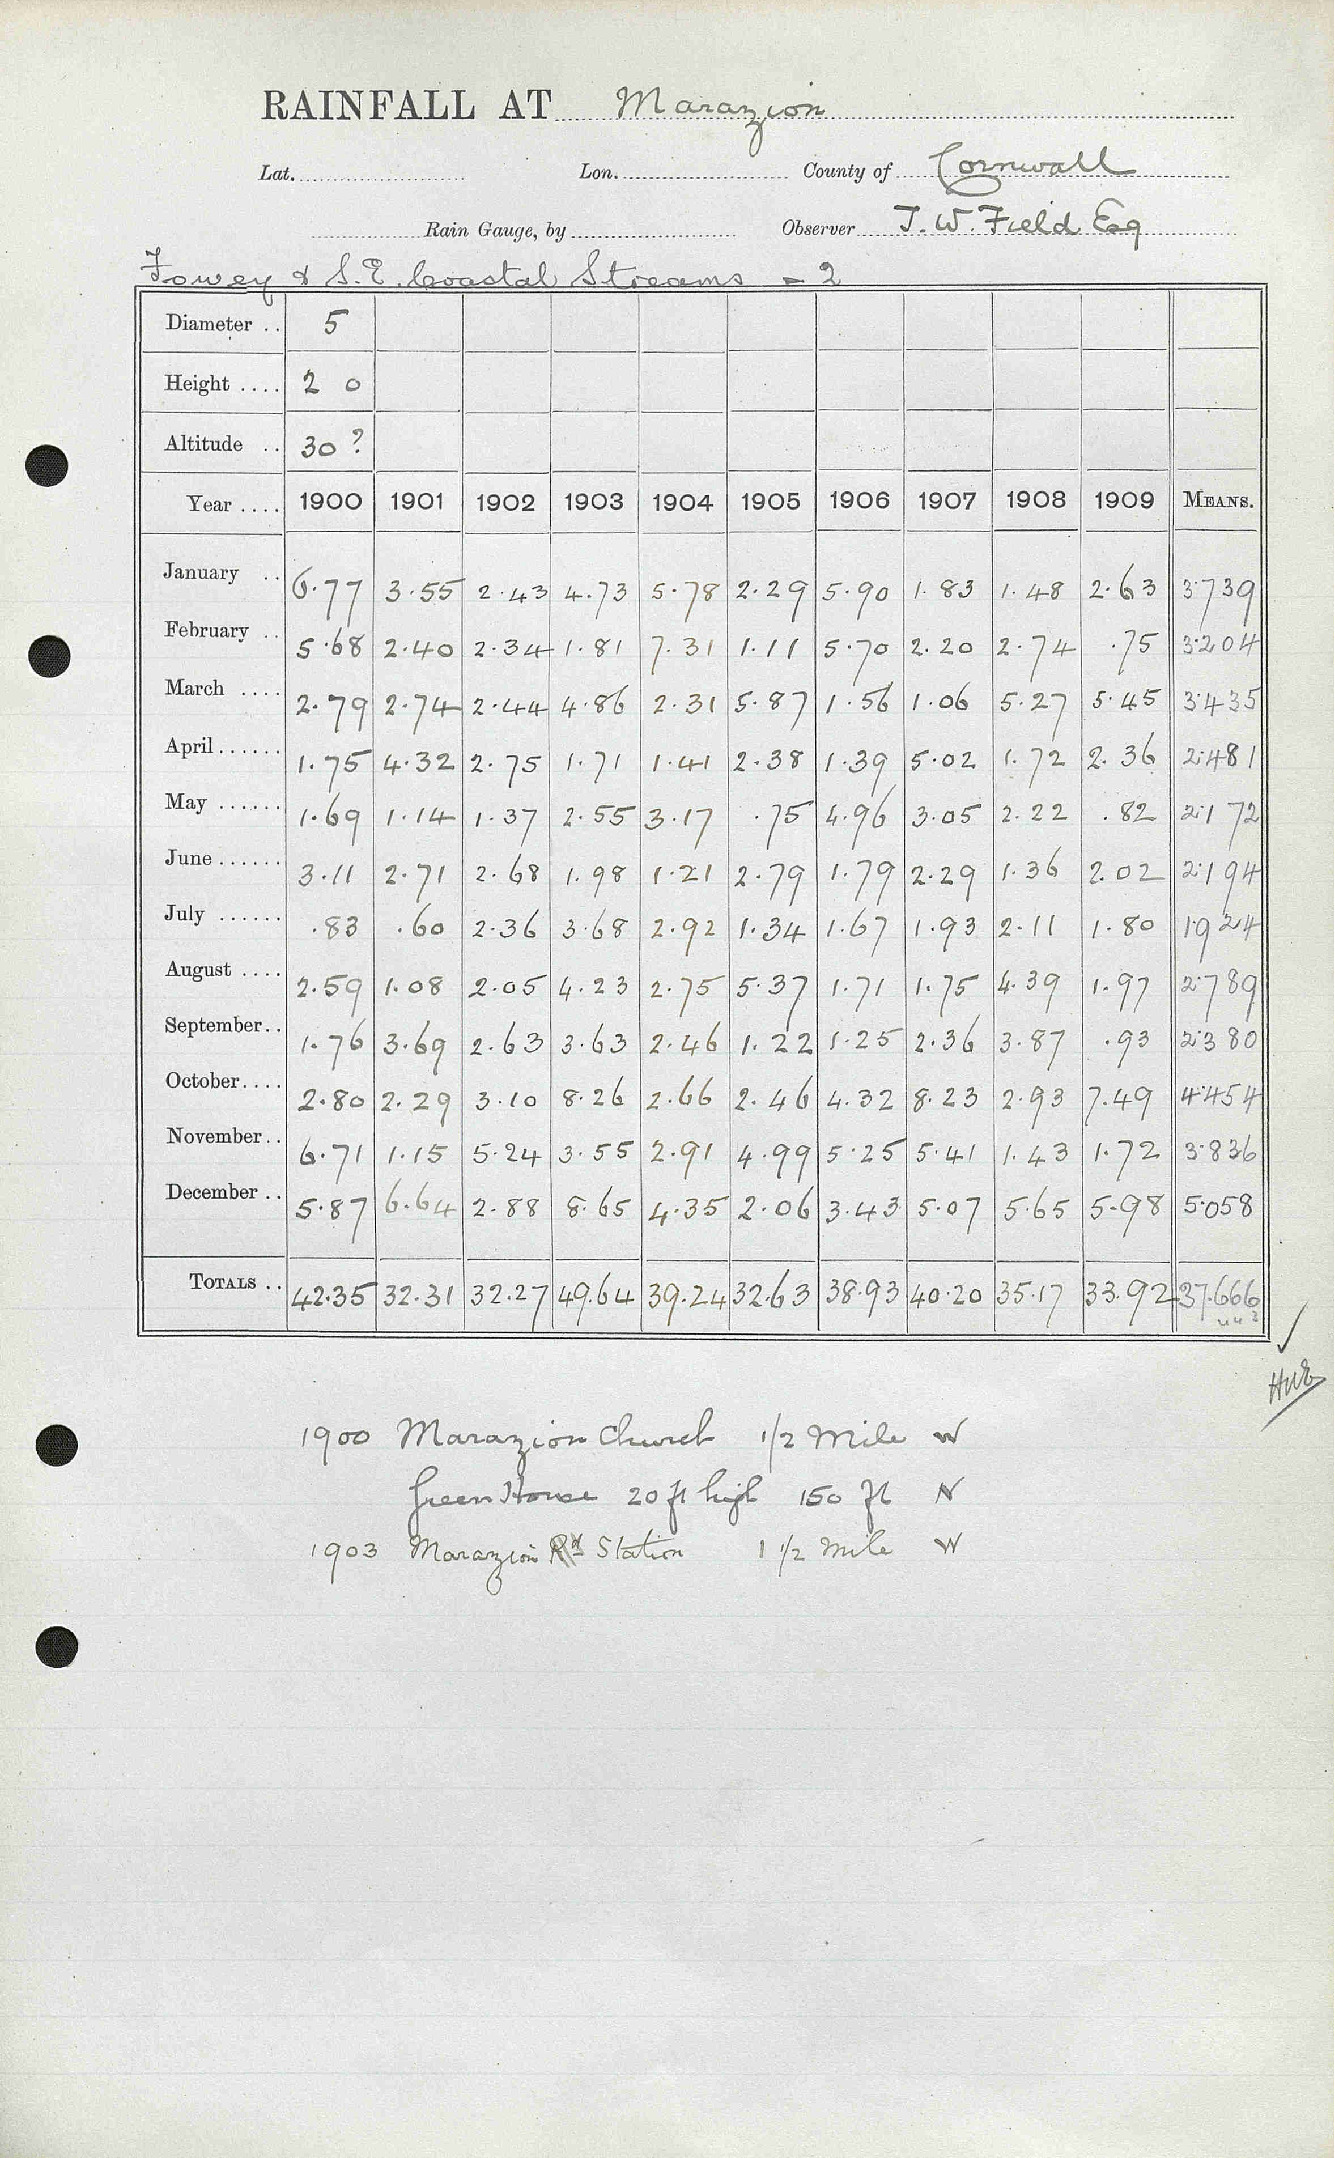 RAINFALL AT Marazion
Lat. Lon. County of Cornwall
Rain Gauge, by Observer T. W. Field Esq
Fowey & S.E. Coastal Streams - 2
Diameter .. 5
Height .... 2 0
Altitude .. 30 ?
Year .... 1900 1901 1902 1903 1904 1905 1906 1907 1908 1909 MEANS.
January .. 6.77 3.55 2.43 4.73 5.78 2.29 5.90 1.83 1.48 2.63 3.739
February .. 5.68 2.40 2.34 1.81 7.31 1.11 5.70 2.20 2.74 .75 3.204
March .... 2.79 2.74 2.44 4.86 2.31 5.87 1.56 1.06 5.27 5.45 3.435
April ...... 1.75 4.32 2.75 1.71 1.41 2.38 1.39 5.02 1.72 2.36 2.481
May ...... 1.69 1.14 1.37 2.55 3.17 .75 4.96 3.05 2.22 .82 2.172
June ...... 3.11 2.71 2.68 1.98 1.21 2.79 1.79 2.29 1.36 2.02 2.194
July ...... .83 .60 2.36 3.68 2.92 1.34 1.67 1.93 2.11 1.80 1.924
August .... 2.59 1.08 2.05 4.23 2.75 5.37 1.71 1.75 4.39 1.97 2.789
September .. 1.76 3.69 2.63 3.63 2.46 1.22 1.25 2.36 3.87 .93 2.380
October .... 2.80 2.29 3.10 8.26 2.66 2.46 4.32 8.23 2.93 7.49 4.454
November .. 6.71 1.15 5.24 3.55 2.91 4.99 5.25 5.41 1.43 1.72 3.836
December .. 5.87 6.64 2.88 8.65 4.35 2.06 3.43 5.07 5.65 5.98 5.058
TOTALS .. 42.35 32.31 32.27 49.64 39.24 32.63 38.93 40.20 35.17 33.92 37.666
1900 Marazion Church 1/2 Mile W
Green House 20 ft high 150 ft N
1903 Marazion Rd Station 1 1/2 Mile W